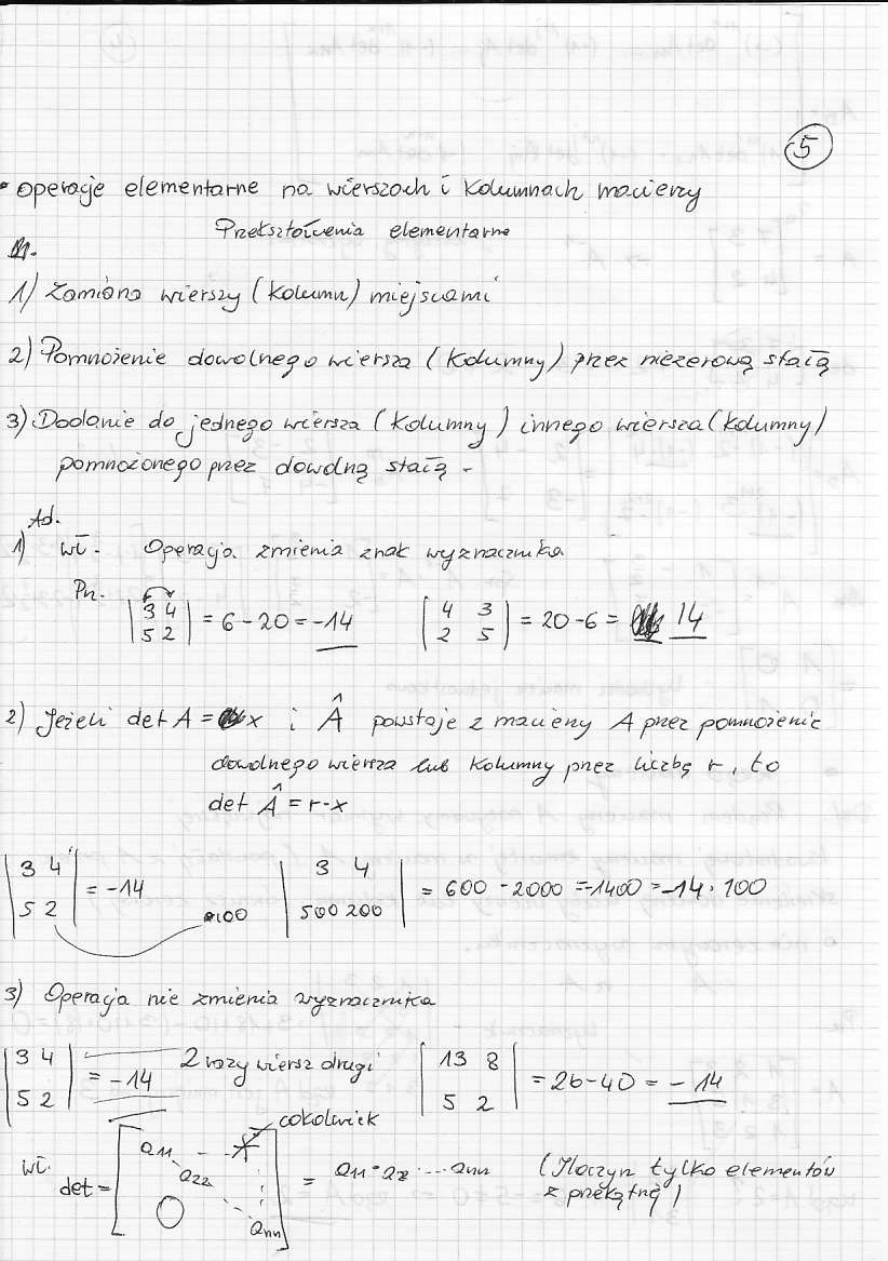 5
• Operacje elementarne na wierszach i kolumnach macierzy
Przekształcenia elementarne
1) Zamiana wierszy (kolumn) miejscami
2) Pomnożenie dowolnego wiersza (kolumny) przez niezerową stałą
3) Dodanie do jednego wiersza (kolumny) innego wiersza (kolumny)
pomnożonego przez dowolną stałą.
Ad.
1) wł. Operacja zmienia znak wyznacznika
Pn.
|3 4| = 6 - 20 = -14 |4 3| = 20 - 6 = 14
|5 2| |2 5|
2) Jeżeli det A = x i Â powstaje z macierzy A przez pomnożenie
dowolnego wiersza lub kolumny przez liczbę r, to
det Â = r·x
|3 4| = -14 |3 4| = 600 - 2000 = -1400 = -14 · 100
|5 2| •100 |500 200|
3) Operacja nie zmienia wyznacznika
|3 4| = -14 2 razy wiersz drugi |13 8| = 26 - 40 = -14
|5 2| |5 2|
cokolwiek
wł. det = [a11 a22 0 ann] = a11 · a22 ... ann (Iloczyn tylko elementów
z przekątnej)